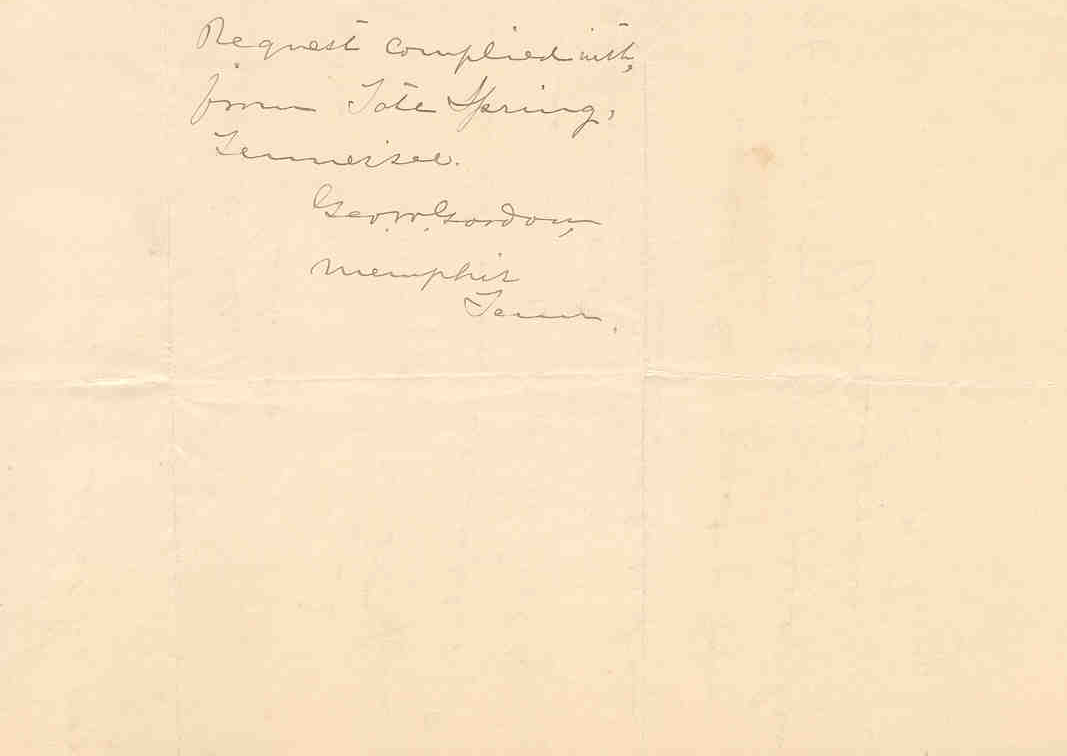 Request complied with,
from Tate Spring,
Tennessee.
Geo. W. Gordon,
Memphis
Tenn.